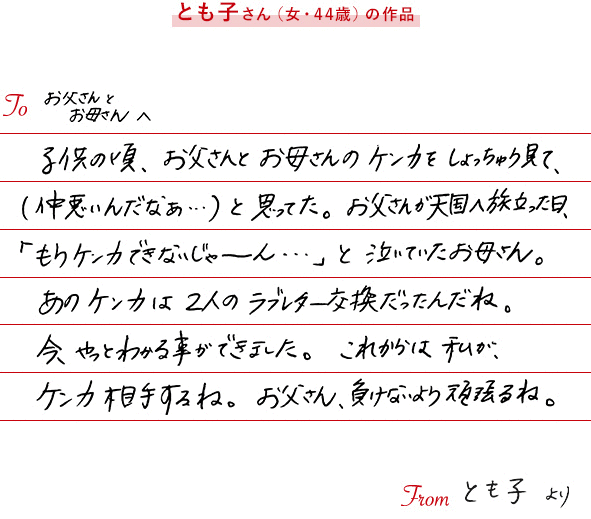 とも子さん（女・44歳）の作品
To お父さんと
お母さんへ
子供の頃、お父さんとお母さんのケンカをしょっちゅう見て、
(仲悪いんだなぁ…)と思ってた。お父さんが天国へ旅立った日、
「もうケンカできないじゃーん…」と泣いていたお母さん。
あのケンカは2人のラブレター交換だったんだね。
今、やっとわかる事ができました。これからは私が、
ケンカ相手するね。お父さん、負けないよう頑張るね。
From とも子より